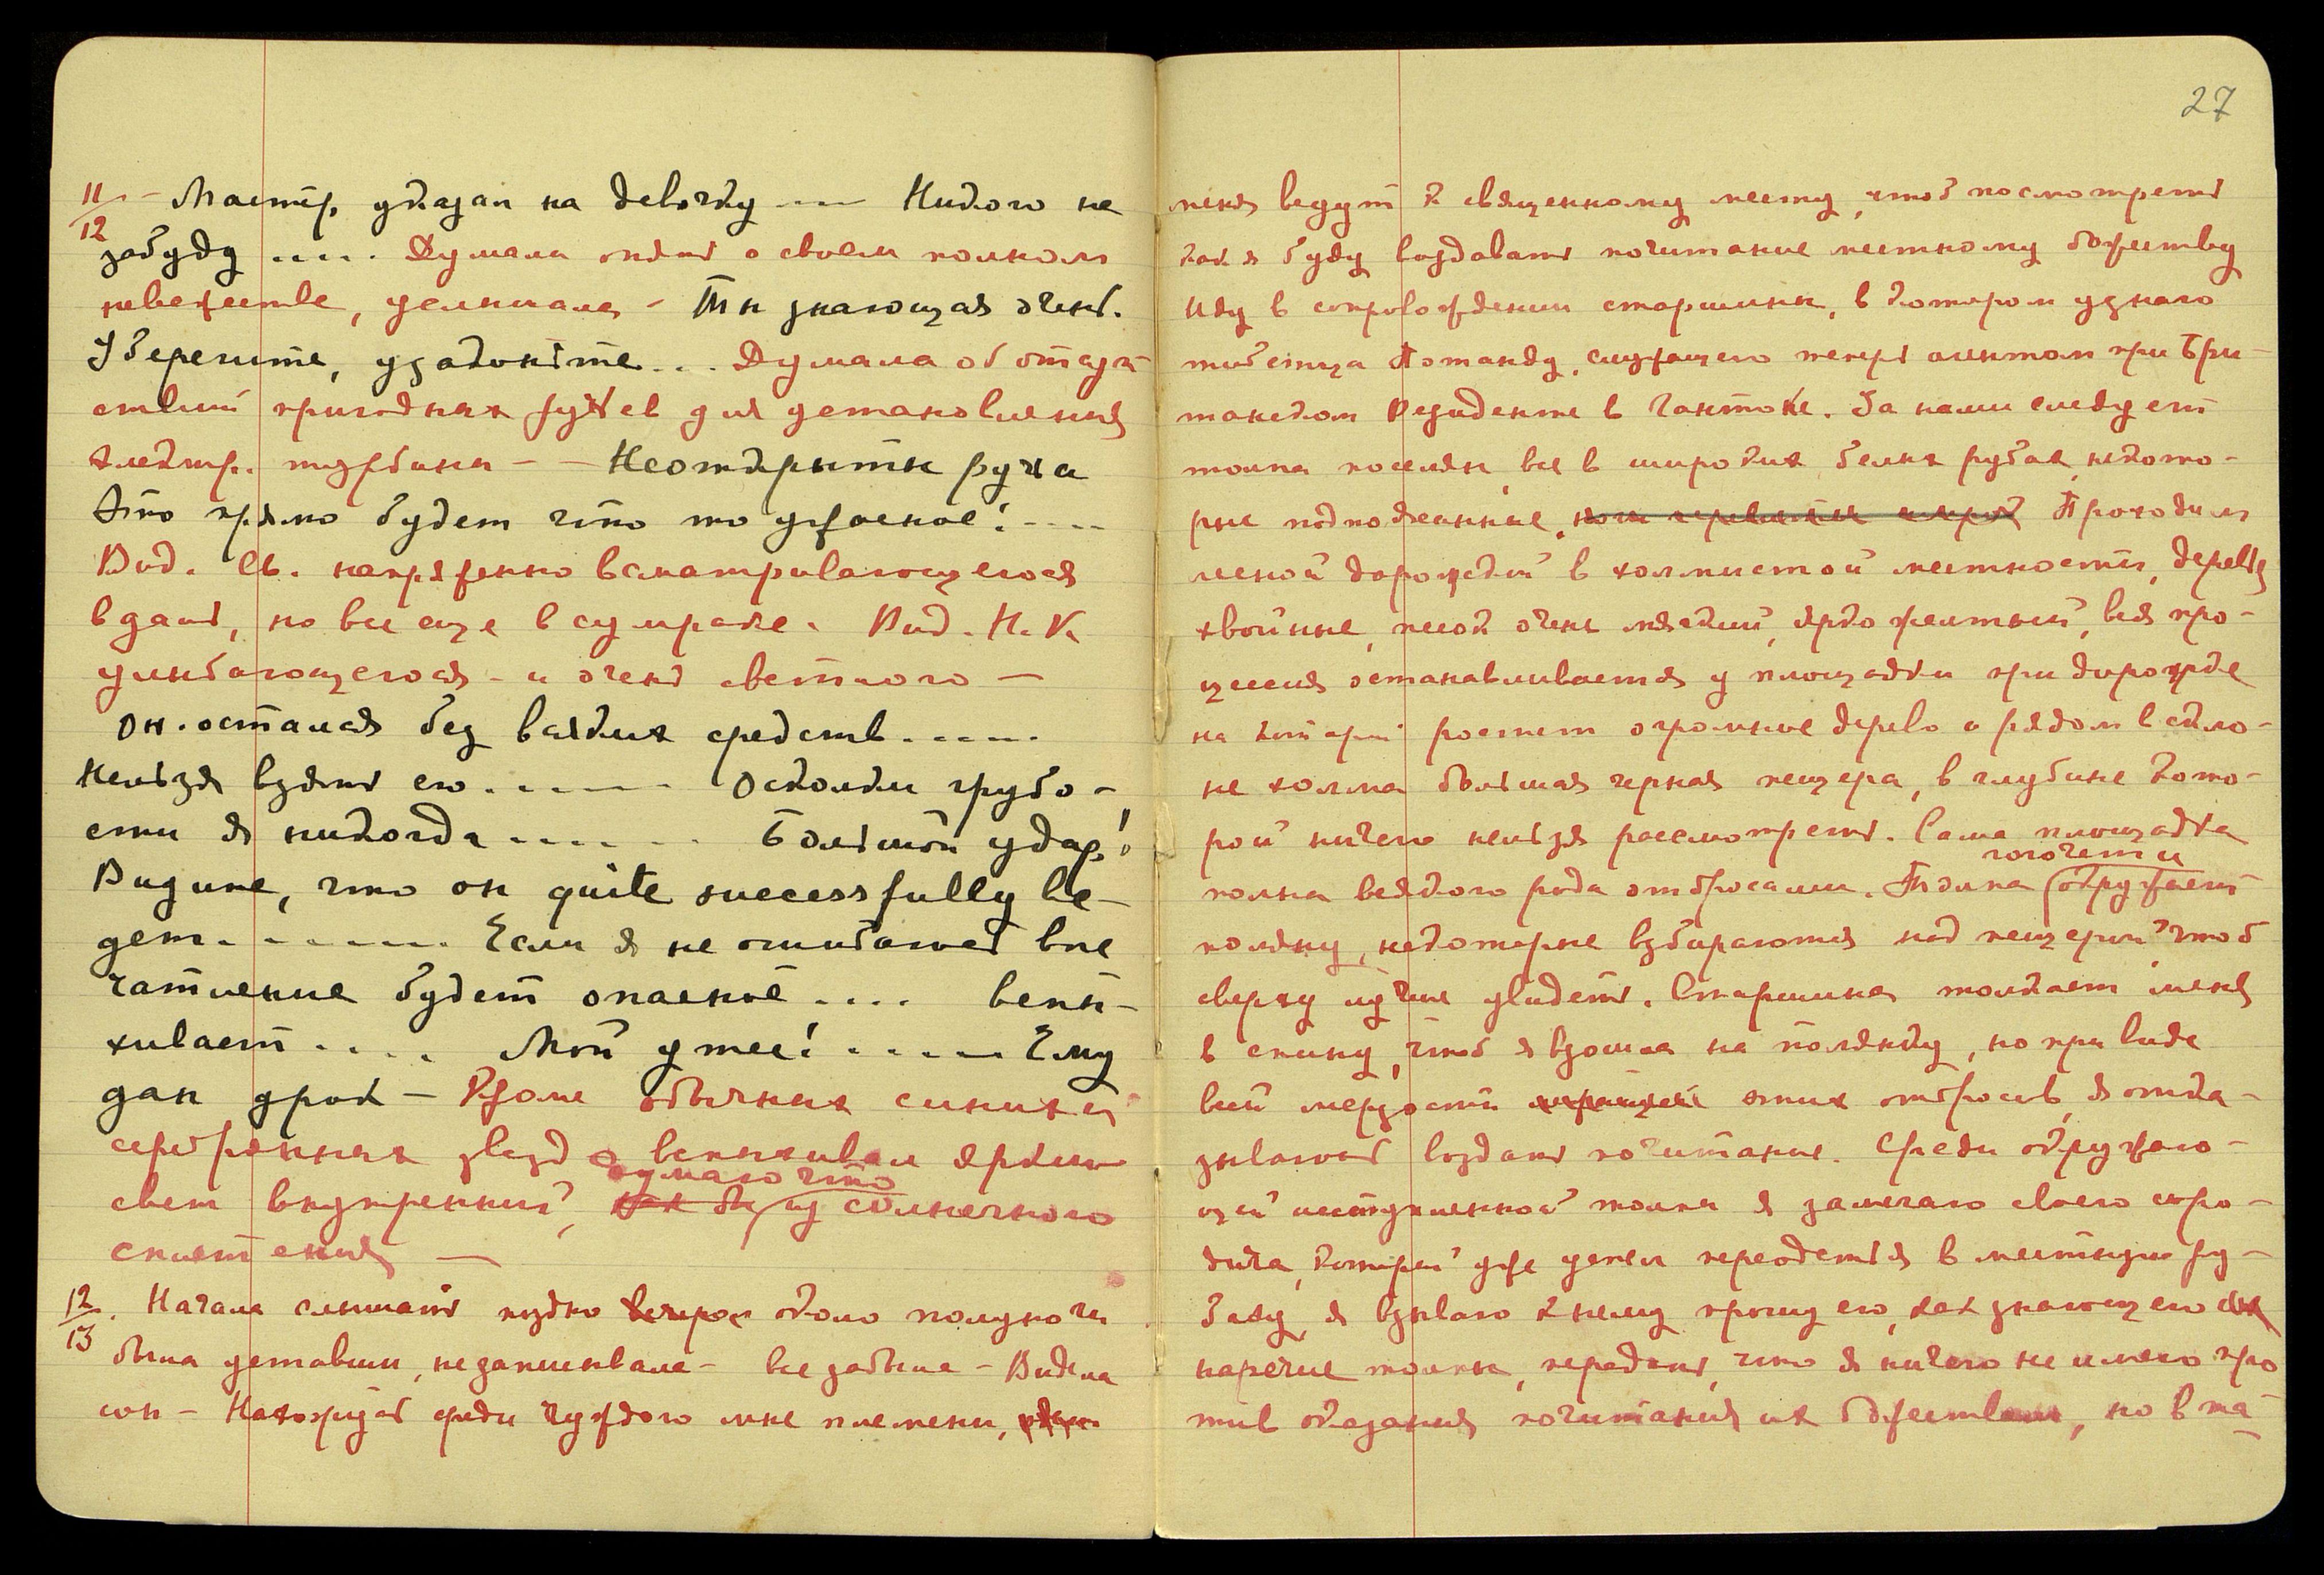 11/12 – Мастер, указан на девочку –––– Никого не
забуду ..... Думала опять о своем полном
невежестве, услышала – Ты знающая очень.
Уберегите, узаконьте... Думала об отсут-
ствии пригодных ручьев для установления
электр. турбины – – Неоткрыты ручьи
Это прямо будет что то ужасное! ----
Вид. Св. напряженно всматривающегося
вдаль, но все еще в сумраке. Вид. Н.К.
улыбающегося – и очень светлого –
Он. остался без всяких средств ------
Нельзя взять его. ------ Осколки грубо-
сти я никогда ------- Большой удар!
Видите, что он quite successfully ве-
дет. ------- Если я не ошибаюсь впе
чатление будет опасное .... вспы-
хивает .... Мой успех! ------ Ему
дан урок – Кроме обычных синих и
серебряных звезд вспыхивал яркий
свет внутренний, думаю что
как бы из солнечного
сплетения –
12/13. Начала слышать поздно вечером около полуночи
была уставши, не записывала – все забыла – Видела
сон – Нахожусь среди чуждого мне племени,
27
меня ведут к священному месту, чтоб посмотреть
как я буду воздавать почитание местному божеству
Иду в сопровождении старшины, в котором узнаю
тибетца Поманду, служащего теперь агентом при Бри-
танском Резиденте в Гантоке. За нами следует
толпа поселян, все в широких белых рубах, некото-
рые подпоясанные, Проходим
лесной дорожкой в холмистой местности, деревья
хвойные, песок очень мягкий, ярко желтый, вся про-
цессия останавливается у площадки при дорожке
на которой растет огромное дерево и рядом в скло-
не холма большая черная пещера, в глубине кото-
рой ничего нельзя рассмотреть. Сама площадка
полна всякого рода отбросами. Толпа гогочет и окружает
полянку, некоторые взбираются над пещерой чтоб
сверху лучше увидеть. Старшина толкает меня
в спину, чтоб я взошла на полянку, но при виде
всей мерзости этих отбросов, я отка-
зываюсь воздать почитание. Среди окружаю-
щей исступленной толпы я замечаю своего соро-
дича, который уже успел переодеться в местную ру-
баху, я взываю к нему прошу его, как знающего
наречие толпы, передать, что я ничего не имею про
тив оказания почитания их божествам, но в та-